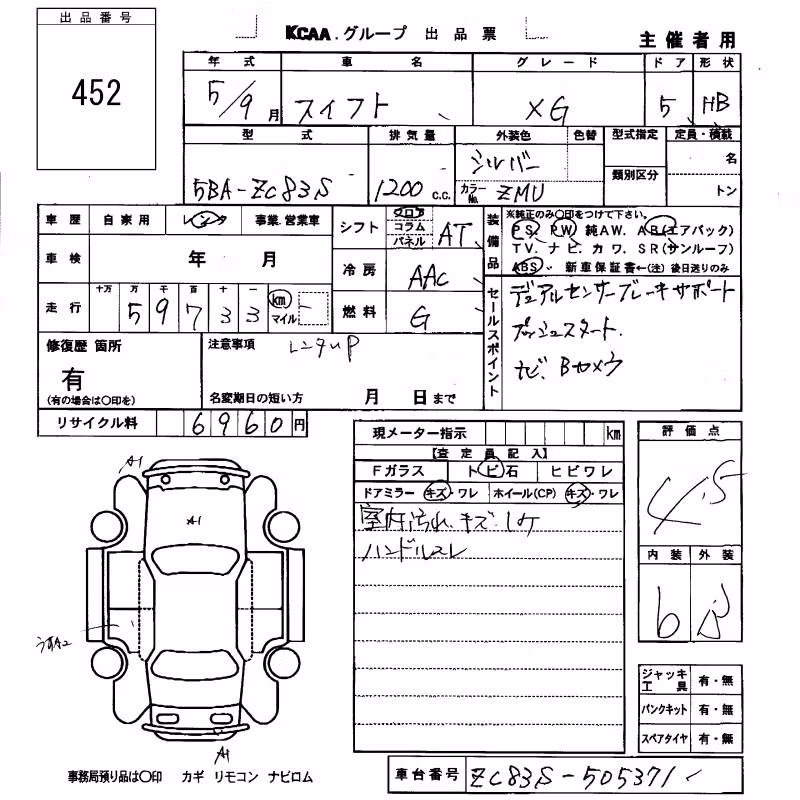 出品番号
452
KCAA.グループ 出品票
主催者用
年式 車名 グレード ドア 形状
5/9月 スイフト XG 5 HB
型式 排気量 外装色 色替 型式指定 定員・積載
5BA-ZC83S 1200 c.c. シルバー 名
カラーNo. ZMU 類別区分 トン
車歴 自家用 レンタ 事業.営業車
車検 年 月
走行 十万 万 千 百 十 一
5 9 7 3 3 km マイル
シフト フロア コラム パネル AT
冷房 AAC
燃料 G
装備品
※純正のみ〇印をつけて下さい。
PS. PW. 純AW. AB(エアバック)
TV. ナビ. カワ. SR(サンルーフ)
ABS. 新車保証書←(注) 後日送りのみ
セールスポイント
デュアルセンサーブレーキサポート
プッシュスタート.
ナビ、Bカメラ
修復歴 箇所
有
(有の場合は〇印を)
注意事項 レンタup
名変期日の短い方 月 日まで
リサイクル料 6960円
現メーター指示 km
【査定員記入】
Fガラス トビ石 ヒビワレ
ドアミラー キズ・ワレ ホイール(CP) キズ・ワレ
室内汚れ、キズ・コケ
ハンドルスレ
評価点
4.5
内装 外装
b B
ジャッキ工具 有・無
パンクキット 有・無
スペアタイヤ 有・無
A1
A1
うすA2
A1
事務局預り品は〇印 カギ リモコン ナビロム
車台番号 ZC83S-505371